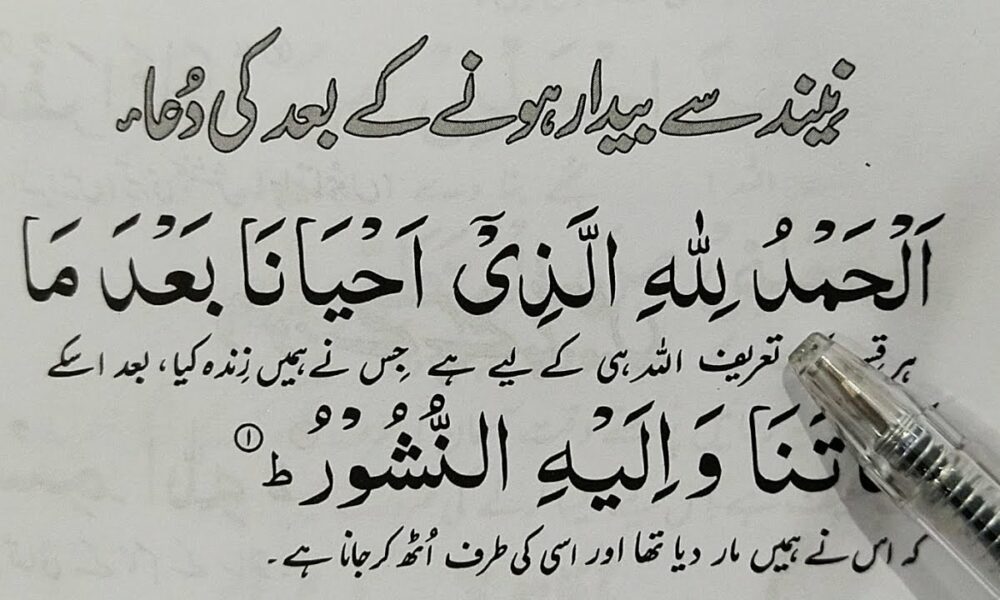 نیند سے بیدار ہونے کے بعد کی دُعاء
اَلْحَمْدُ لِلّٰهِ الَّذِیْۤ اَحْیَانَا بَعْدَ مَا
ہر تعریف اللہ ہی کے لیے ہے جِس نے ہمیں زِندہ کیا، بعد اسکے
وَاِلَیْهِ النُّشُوْرُ ط ①
کہ اس نے ہمیں مار دیا تھا اور اسی کی طرف اُٹھ کر جانا ہے۔